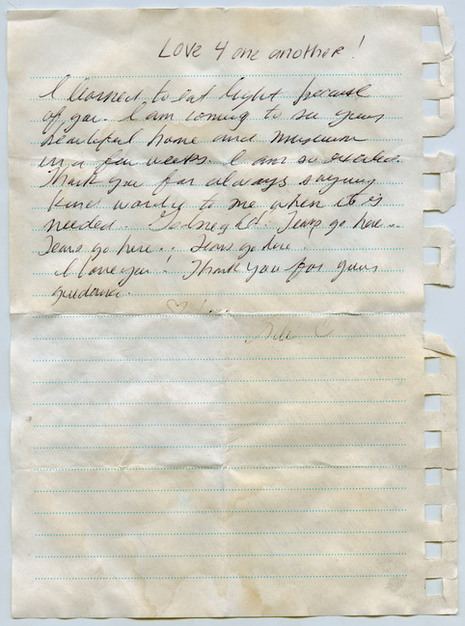 Love 4 one another!
I learned to eat light because
of you. I am coming to see your
beautiful home and museum
in a few weeks. I am so excited.
Thank you for always saying
kind words to me when it is
needed. Tears go here...
Tears go here... Tears go here.
I love you! Thank you for your
guidance.